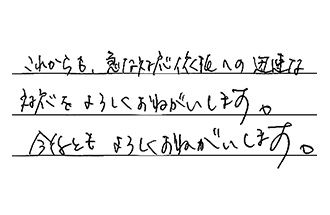 これからも、急な対応依頼への迅速な
対応をよろしくおねがいします。
今後ともよろしくおねがいします。